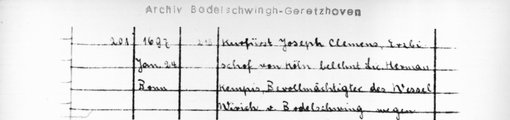 Archiv Bodelschwingh-Geretzhoven
201 1697 Kurfürst Joseph Clemens, Erzbi
Jan. 24 schof von Köln, belehnt Lic. Herman
Bonn Kempis, Bevollmächtigter des Wessel
Wirich v. Bodelschwing wegen